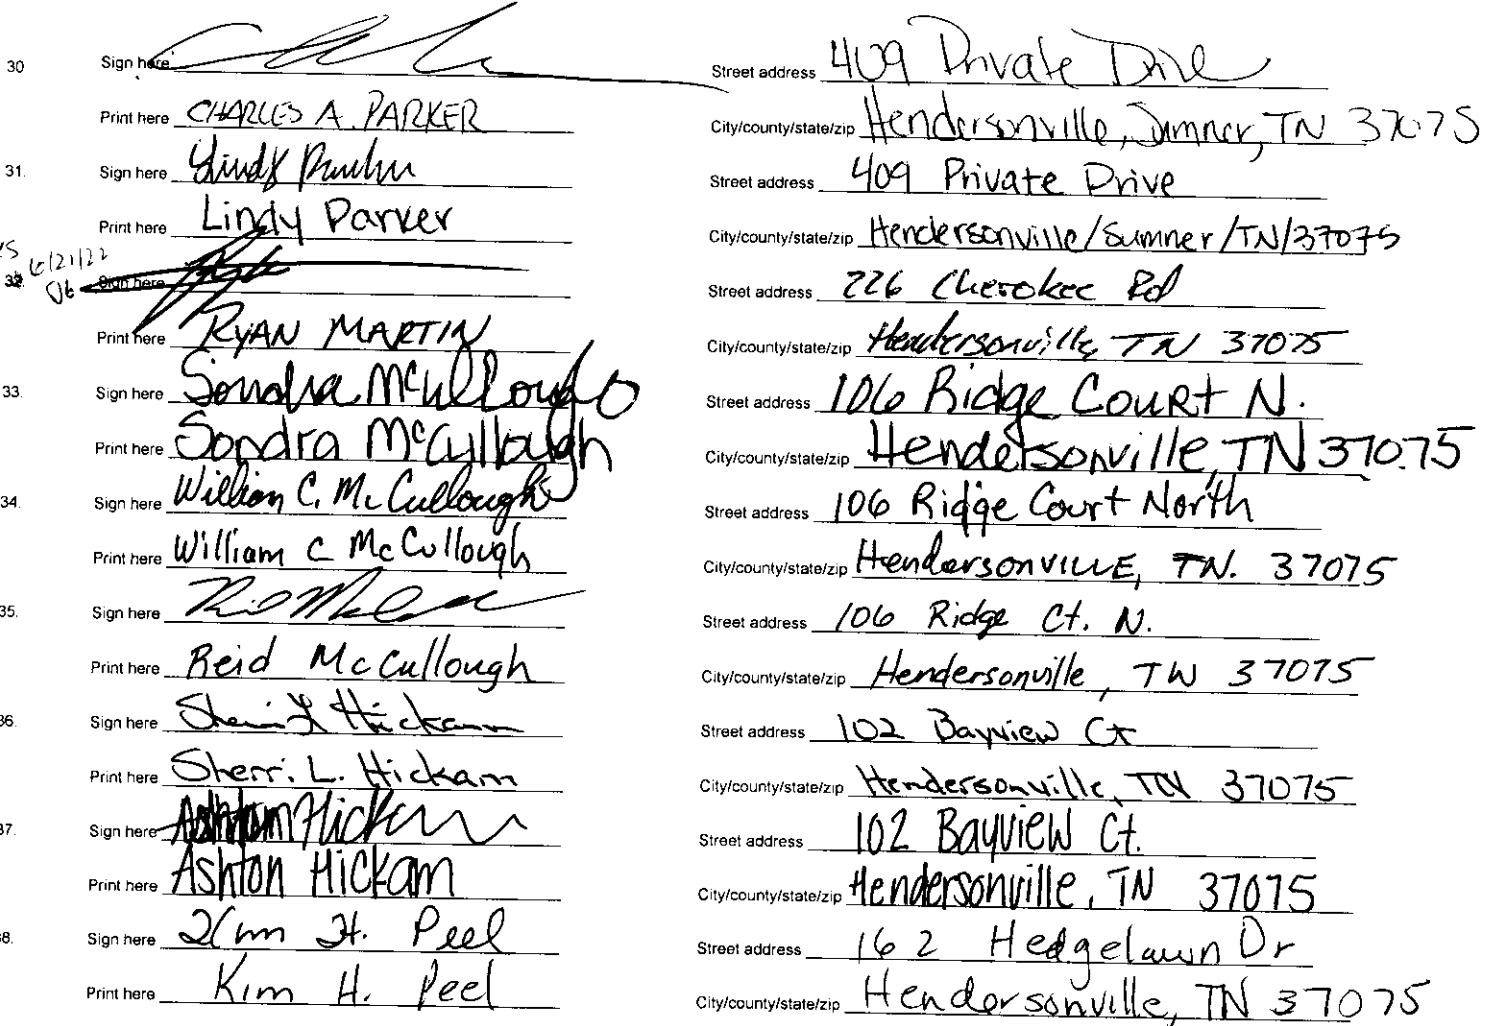 30 Sign here Street address 409 Private Drive
Print here CHARLES A. PARKER City/county/state/zip Hendersonville, Sumner, TN 37075
31. Sign here Lindy Parker Street address 409 Private Drive
Print here Lindy Parker City/county/state/zip Hendersonville/Sumner/TN/37075
6/21/22
32. Sign here Street address 226 Cherokee Rd
Print here RYAN MARTIN City/county/state/zip Hendersonville, TN 37075
33. Sign here Sondra McCullough Street address 106 Ridge Court N.
Print here Sondra McCullough City/county/state/zip Hendersonville, TN 37075
34. Sign here William C. McCullough Street address 106 Ridge Court North
Print here William C McCullough City/county/state/zip HendersonvILLE, TN. 37075
35. Sign here Street address 106 Ridge Ct. N.
Print here Reid McCullough City/county/state/zip Hendersonville, TN 37075
36. Sign here Sherri L Hickam Street address 102 Bayview Ct
Print here Sherri L. Hickam City/county/state/zip Hendersonville, TN 37075
37. Sign here Ashton Hickam Street address 102 Bayview Ct.
Print here Ashton Hickam City/county/state/zip Hendersonville, TN 37075
38. Sign here Kim H. Peel Street address 162 Hedgelawn Dr
Print here Kim H. Peel City/county/state/zip Hendersonville, TN 37075